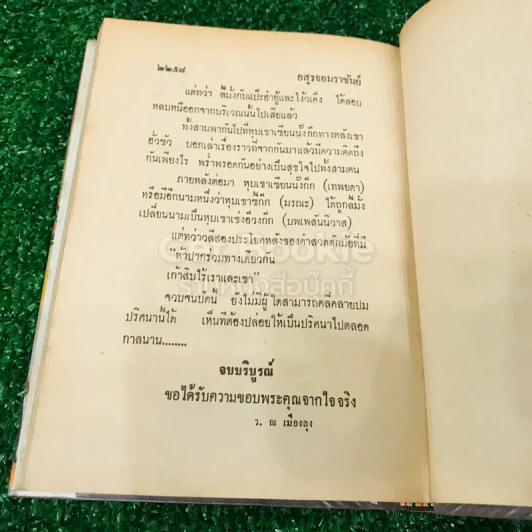 ๒๒๕๘ อสูรจอมราชันย์
แต่ทว่า ลี้มั้งกับแป๊ะฮ่ายู้และโง้วเค็ง ได้ลอบ
หลบหนีออกจากบริเวณนั้นไปเสียแล้ว
ทั้งสามพากันไปที่หุบเขาเซียนนั้งกีกทางหลังเขา
ฮั้วซัว บอกเล่าเรื่องราวที่จากกันมาแล้วมีความคิดถึง
กันเพียงไร พร่ำพรอดกันอย่างเป็นสุขใจไปทั้งสามคน
ภายหลังต่อมา หุบเขาเซียนนั้งกีก (เทพยดา)
หรือมีอีกนามหนึ่งว่าหุบเขาซี้กีก (มรณะ) ได้ถูกลี้มั้ง
เปลี่ยนนามเป็นหุบเขาเซ่งอีวงกีก (บพเพสันนิวาส)
แต่ทว่าวลีสองประโยคหลังของคำสวดดักมัอที่มี
"ห้าปากร่วมทางเดียวกัน
เก้าสิบไร้เราและเขา"
จวบจนบัดนี้ ยังไม่มีผู้ใดสามารถคลี่คลายปม
ปริศนานี้ได้ เห็นที่ต้องปล่อยให้เป็นปริศนาไปตลอด
กาลนาน........
จบบริบูรณ์
ขอได้รับความขอบพระคุณจากใจจริง
ว. ณ เมืองลุง
Get Bookie
ร้านหนังสือบุ๊คกี้